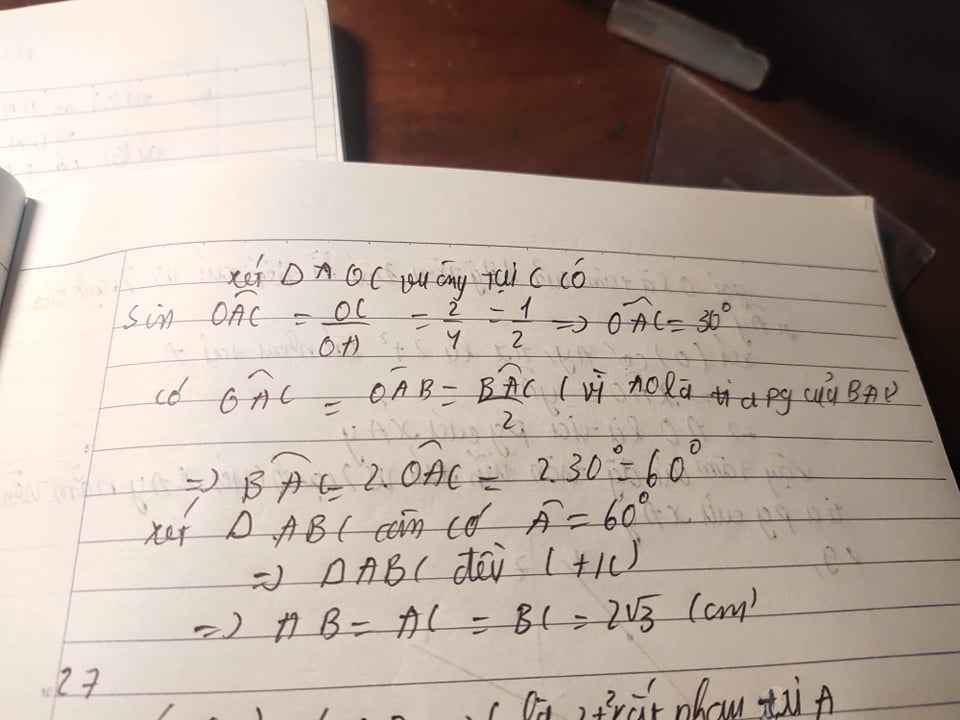 xét ΔAOC vuông tại C có
Sin OAC = OC/OA = 2/4 = 1/2 => OAC = 30°
có OAC = OAB = BAC/2 ( vì AO là tia pg của BAC
=> BAC = 2.OAC = 2.30° = 60°
xét ΔABC cân có A = 60°
=> ΔABC đều (
=> AB = AC = BC = 2√3 (cm)
27
tại A